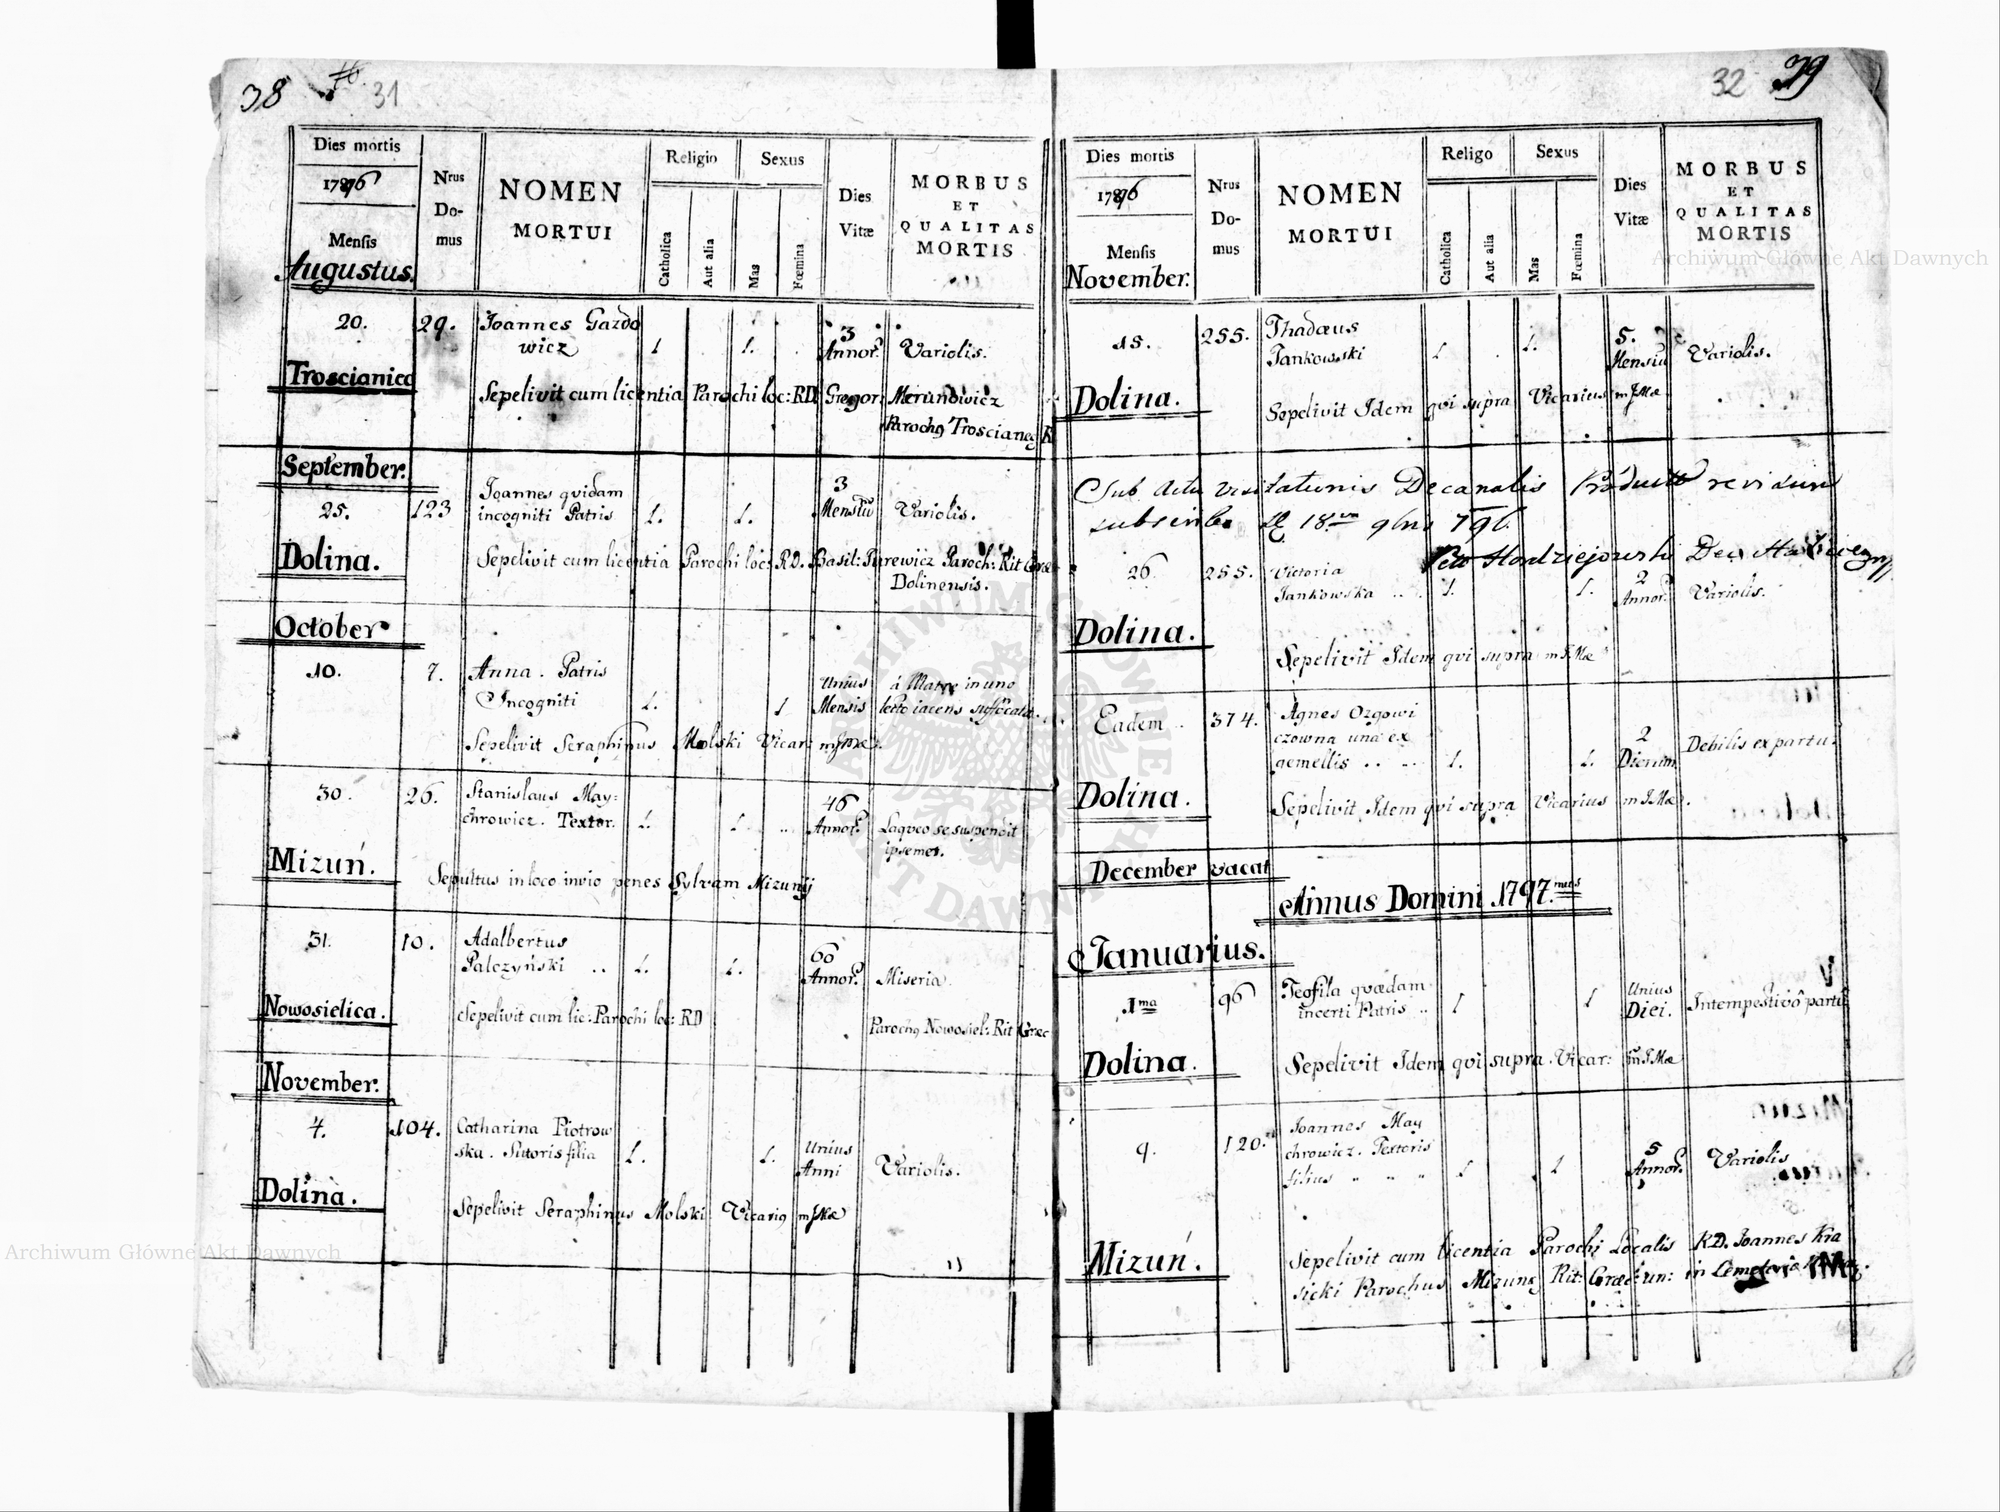 38 31
Dies mortis
1796
Mensis
Augustus.
Nrus Domus
NOMEN
MORTUI
Religio
Catholica
Aut alia
Sexus
Mas
Fœmina
Dies
Vitæ
MORBUS
ET
QUALITAS
MORTIS
20. 29. Joannes Gazdo
wicz 1 . 1. . 3 Annor. Variolis.
Troscianiec
Sepelivit cum licentia Parochi loc: RD Gregor: Merunowicz
Parochq Troscianeq R
September.
25. 123 Joannes qvidam
incogniti Patris 1. 1. 3 Mensiū Variolis.
Dolina.
Sepelivit cum licentia Parochi loc: RD. Basil: Turewicz Paroch: Rit Græc
Dolinensis.
October
10. 7. Anna. Patris
Incogniti 1. 1 Unius Mensis à Matre in uno
lecto iacens suffocata.
Sepelivit Seraphinus Molski Vicar: mpmæ.
30. 26. Stanislaus May:
chrowicz. Textor. 1. 1. .. 46 Annor. Laqveo se suspendit
ipsemet.
Mizuń.
Sepultus in loco invio penes Sylvam Mizunij
31. 10. Adalbertus
Palczyński .. 1. 1. 60 Annor. Miseria.
Nowosielica.
Sepelivit cum lic: Parochi loc: RD
Parochq Nowosiel: Rit Græc
November.
4. 104. Catharina Piotrow
ska. Sutoris filia 1. 1. Unius Anni Variolis.
Dolina.
Sepelivit Seraphinus Molski Vicariq mpmæ
32 39
Dies mortis
1796
Mensis
November.
Nrus Domus
NOMEN
MORTUI
Religo
Catholica
Aut alia
Sexus
Mas
Fœmina
Dies
Vitæ
MORBUS
ET
QUALITAS
MORTIS
15. 255. Thadæus
Jankowski 1 . 1. 5. Mensiū Variolis.
Dolina.
Sepelivit Idem qvi supra Vicarius mpmæ
Sub Actu Decanalis
26 255. Victoria
Jankowska .. . 1. 1. 2 Annor. Variolis.
Dolina.
Sepelivit Idem qvi supra mpmæ
Eadem .. 374. Agnes Ozgowi
czowna una ex
gemellis .. .. 1. 1. 2 Dierum Debilis ex partu.
Dolina.
Sepelivit Idem qvi supra Vicarius mpmæ.
December vacat
Annus Domini 1797.mus
Januarius.
1ma 96 Teofila qvædam
incerti Patris .. 1 1 Unius Diei. Intempestivô partu
Dolina.
Sepelivit Idem qvi supra Vicar: mpmæ
9. 120. Joannes May
chrowicz. Textoris
filius " " " 1 1 5 Annor. Variolis
Mizuń.
Sepelivit cum licentia Parochi Localis RD. Joannes Kra
sicki Parochus Mizunq Rit: Græc: un: in Cemeterio
Archiwum Główne Akt Dawnych
Archiwum Główne Akt Dawnych
ARCHIWUM GŁÓWNE AKT DAWNYCH